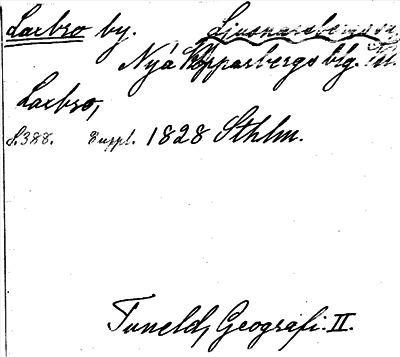 Laxbro by. Ljusnarsbergs sn
Nya Kopparbergs blg.
Laxbro,
S.388. Suppl. 1828 Sthlm.
Tuneld, Geografi. II.